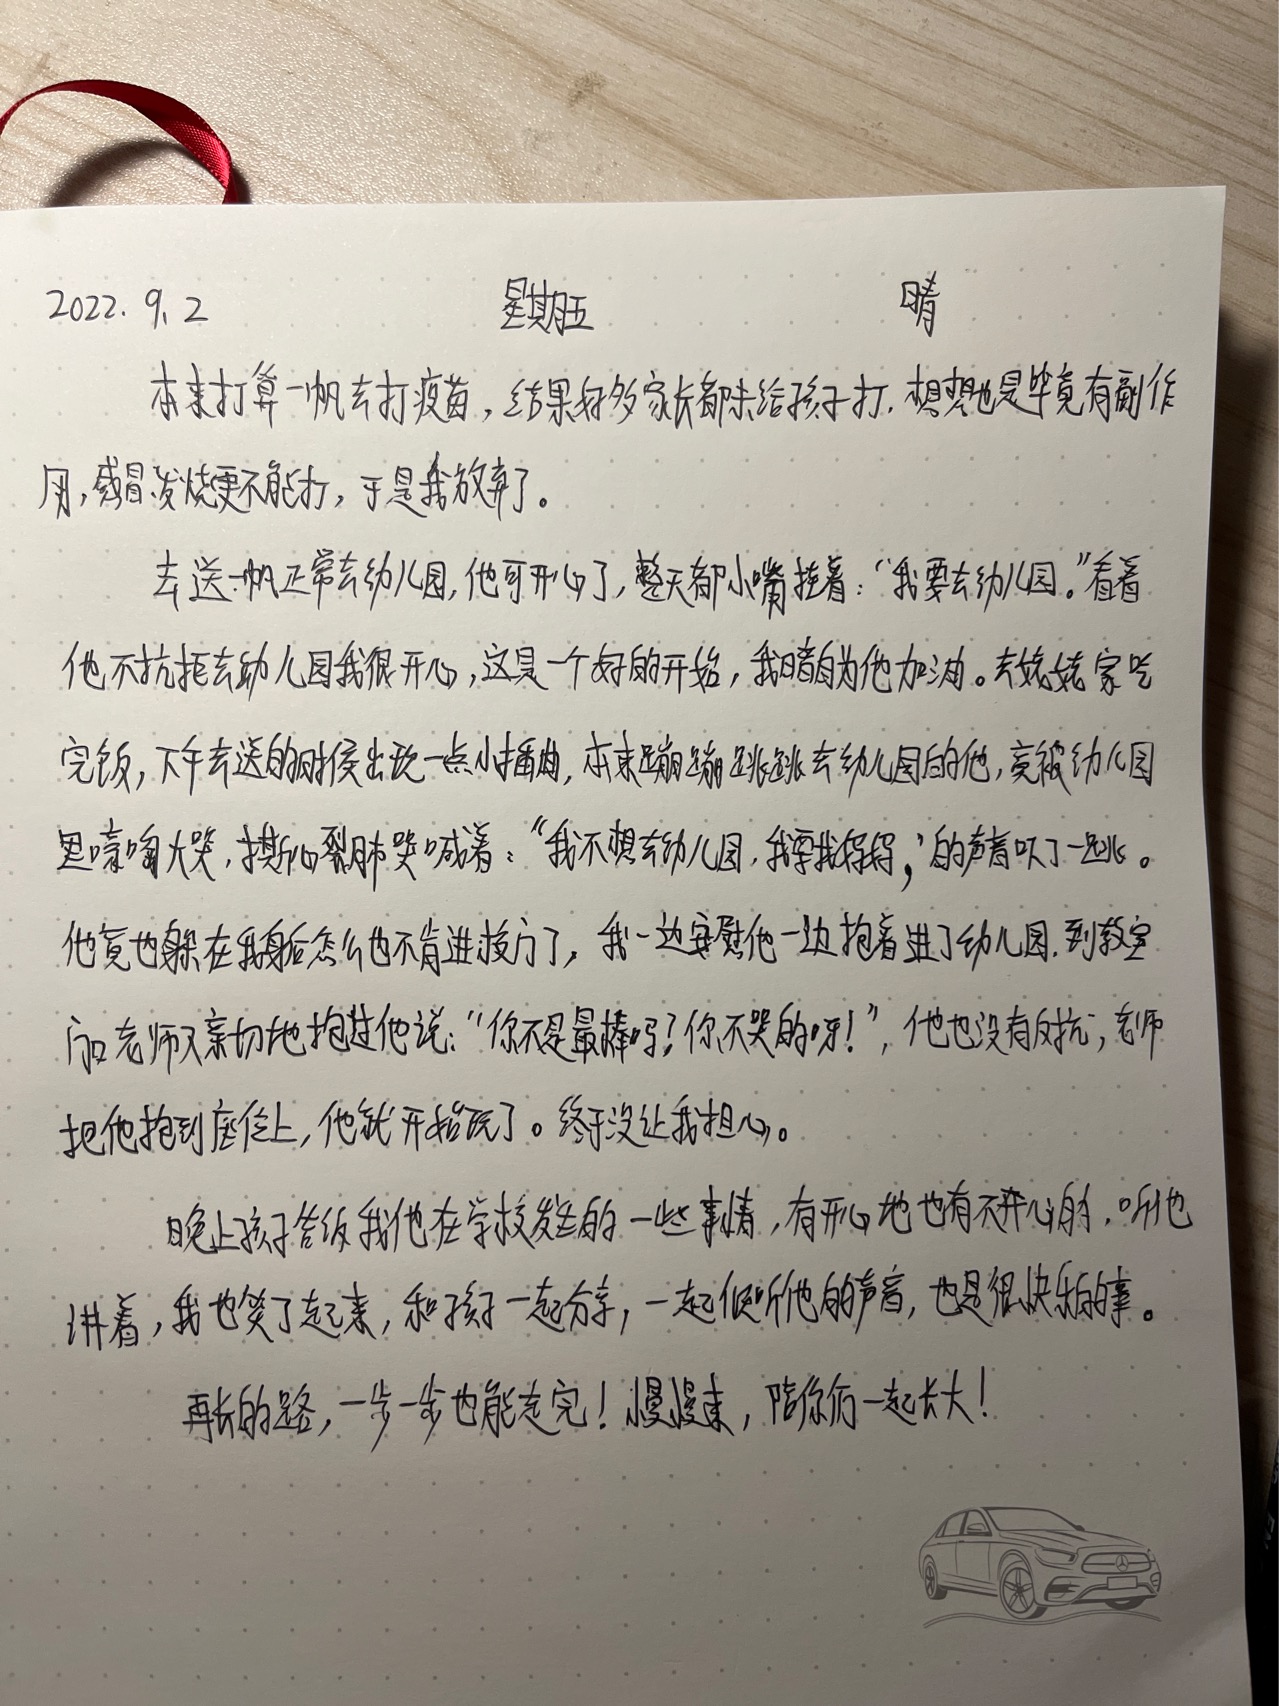 2022.9.2 星期五 晴
本来打算一帆去打疫苗，结果好多家长都未给孩子打．想想也是毕竟有副作
用，感冒、发烧更不能打，于是我放弃了。
去送一帆正常去幼儿园，他可开心了，整天都小嘴挂着：“我要去幼儿园。”看着
他不抗拒去幼儿园我很开心，这是一个好的开始，我暗自为他加油。去姥姥家吃
完饭，下午去送的时候出现一点小插曲，本来蹦蹦跳跳去幼儿园的他，竟被幼儿园
里嚎啕大哭，撕心裂肺哭喊着：“我不想去幼儿园，我要找妈妈，”的声音吓了一跳。
他竟也躲在我身后怎么也不肯进校门了，我一边安慰他一边抱着进了幼儿园．到教室
门口老师又亲切地抱过他说：“你不是最棒吗？你不哭的呀！”，他也没有反抗，老师
把他抱到座位上，他就开始玩了。终于没让我担心。
晚上孩子告诉我他在学校发生的一些事情，有开心地也有不开心的．听他
讲着，我也笑了起来，和孩子一起分享，一起倾听他的声音，也是很快乐的事。
再长的路，一步一步也能走完！慢慢来，陪你们一起长大！